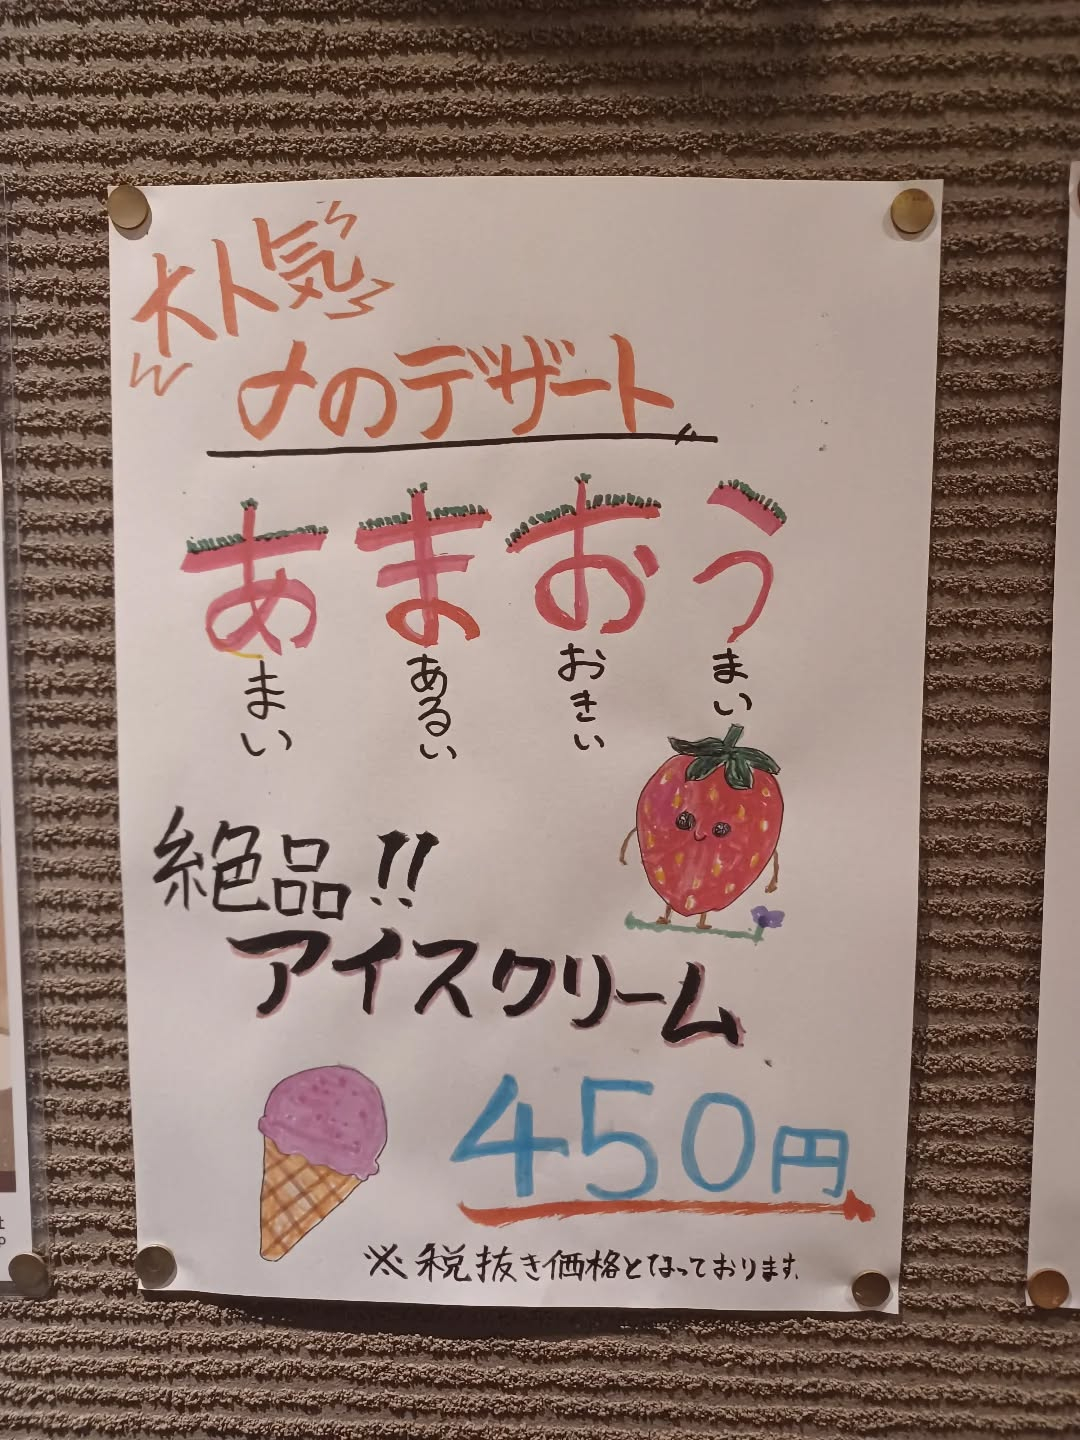 大人気
〆のデザート
あまおう
あまい
まあるい
おおきい
うまい
絶品!!
アイスクリーム
450円
※税抜き価格となっております。